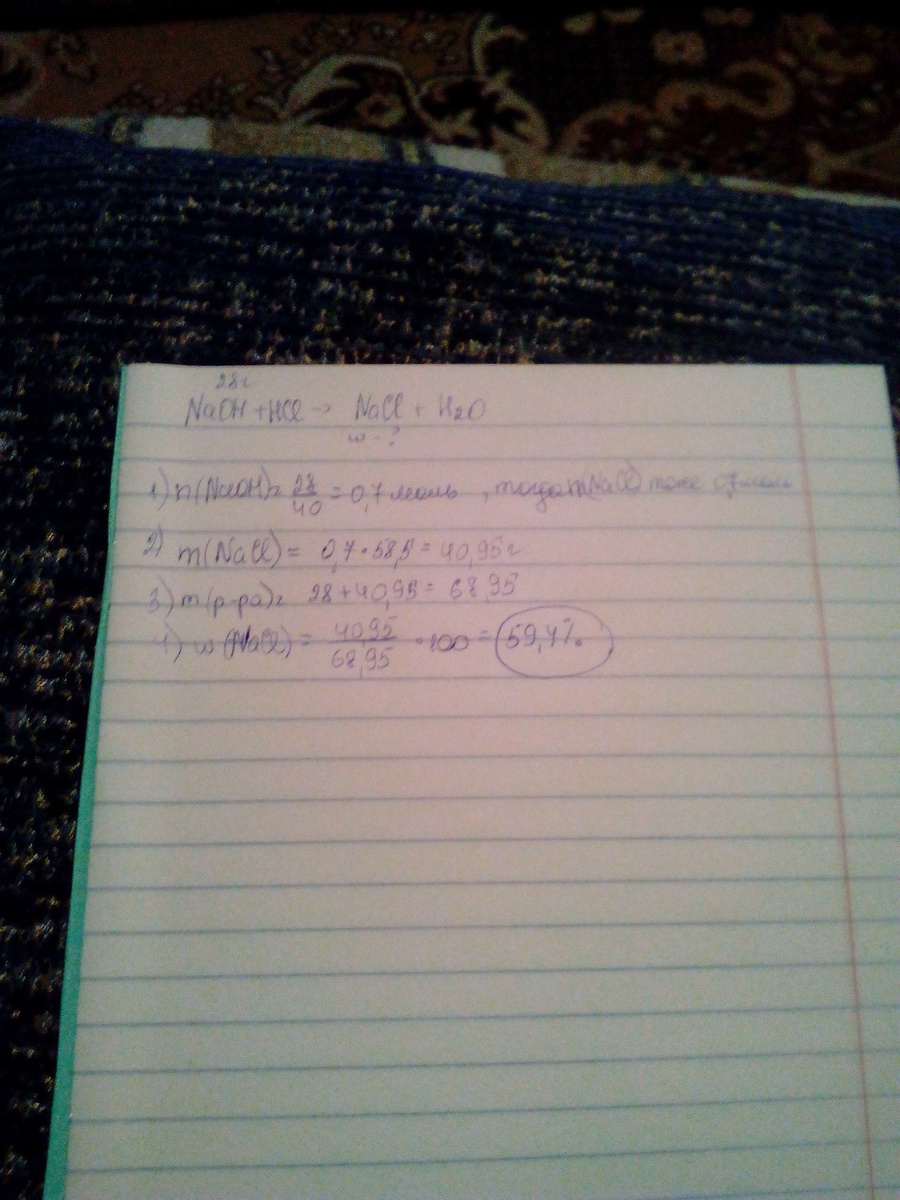 28г
NaOH + HCl → NaCl + H2O
w - ?
1) n(NaOH) = 28/40 = 0,7 моль , тогда n(NaCl) тоже 0,7 моль
2) m(NaCl) = 0,7 · 58,5 = 40,95 г
3) m(р-ра) = 28 + 40,95 = 68,95
4) w(NaCl) = 40,95/68,95 · 100 = 59,4%